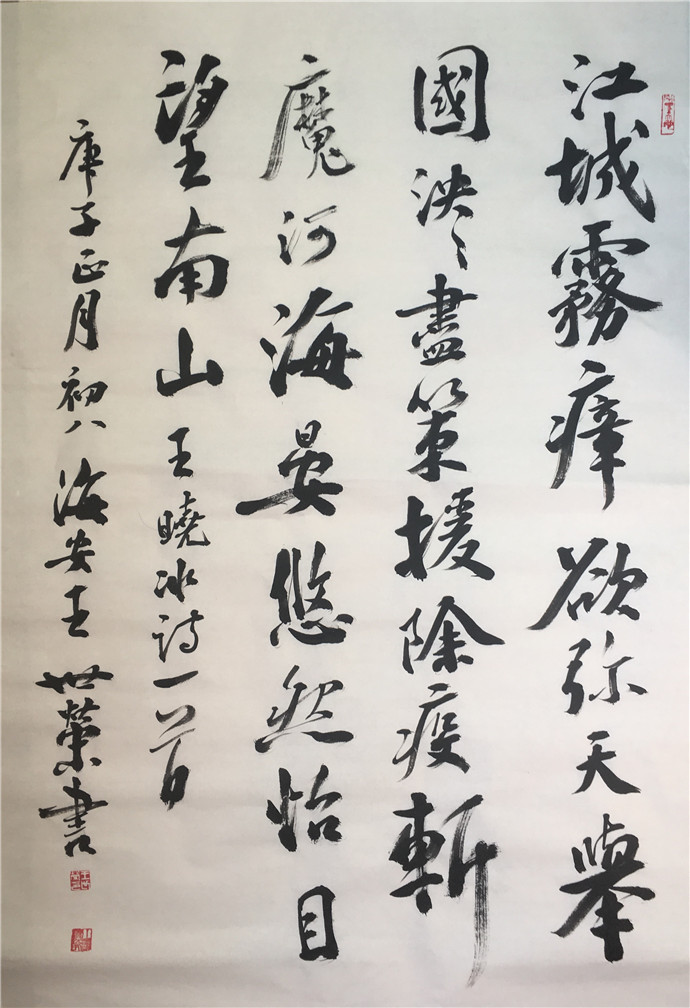 江城霧瘴欲弥天舉
國泱泱盡策援除疫斬
魔河海晏悠然怡目
望南山王曉冰詩一首
庚子正月初八海安王世榮書